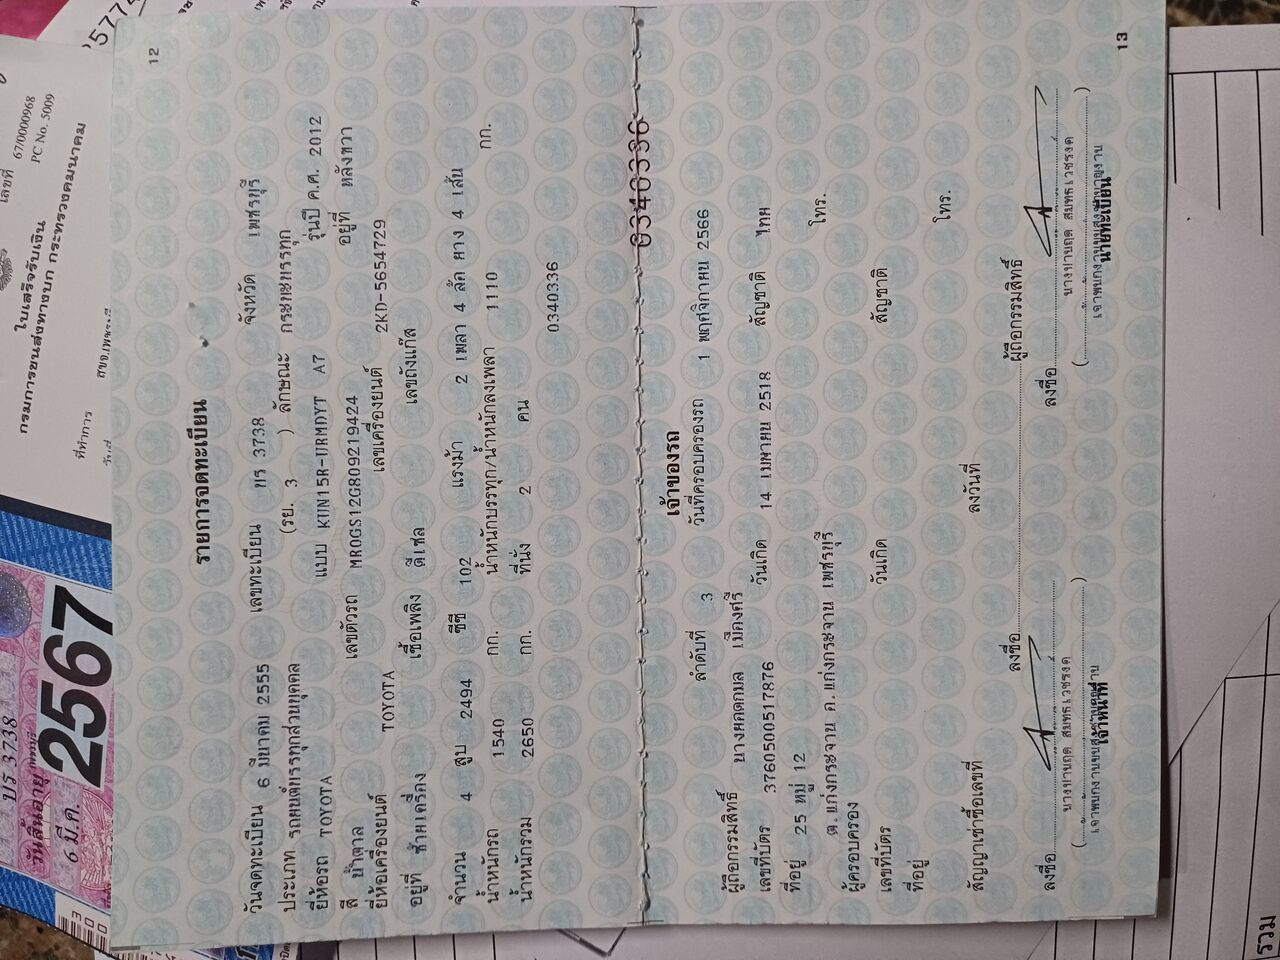 เลขที่ 67/0000968
PC No. 5009
ใบเสร็จรับเงิน
กรมการขนส่งทางบก กระทรวงคมนาคม
ที่ทำการ
บร 3738
เพชรบุรี
วันสิ้นอายุ
6 มี.ค. 2567
12
รายการจดทะเบียน
วันจดทะเบียน 6 มีนาคม 2555 เลขทะเบียน บร 3738 จังหวัด เพชรบุรี
ประเภท รถยนต์บรรทุกส่วนบุคคล (รย. 3 ) ลักษณะ กระบะบรรทุก
ยี่ห้อรถ TOYOTA แบบ KUN15R-URMDYT A7 รุ่นปี ค.ศ. 2012
สี น้ำตาล เลขตัวรถ MR0GS12G809219424 อยู่ที่ หลังขวา
ยี่ห้อเครื่องยนต์ TOYOTA เลขเครื่องยนต์ 2KD-5654729
อยู่ที่ ซ้ายเครื่อง เชื้อเพลิง ดีเซล เลขถังแก๊ส
จำนวน 4 สูบ 2494 ซีซี 102 แรงม้า 2 เพลา 4 ล้อ ยาง 4 เส้น
น้ำหนักรถ 1540 กก. น้ำหนักบรรทุก/น้ำหนักลงเพลา 1110 กก.
น้ำหนักรวม 2650 กก. ที่นั่ง 2 คน
0340336
0340336
เจ้าของรถ
ลำดับที่ 3 วันที่ครอบครองรถ 1 พฤศจิกายน 2566
ผู้ถือกรรมสิทธิ์ นางหยดกมล เมืองศรี
เลขที่บัตร 3760500517876 วันเกิด 14 เมษายน 2518 สัญชาติ ไทย
ที่อยู่ 25 หมู่ 12
ต.แก่งกระจาน อ.แก่งกระจาน เพชรบุรี โทร.
ผู้ครอบครอง
เลขที่บัตร วันเกิด สัญชาติ
ที่อยู่
โทร.
สัญญาเช่าซื้อเลขที่ ลงวันที่
ลงชื่อ ผู้ถือกรรมสิทธิ์
ลงชื่อ ลงชื่อ
เจ้าหน้าที่ นายทะเบียน
13
รวม